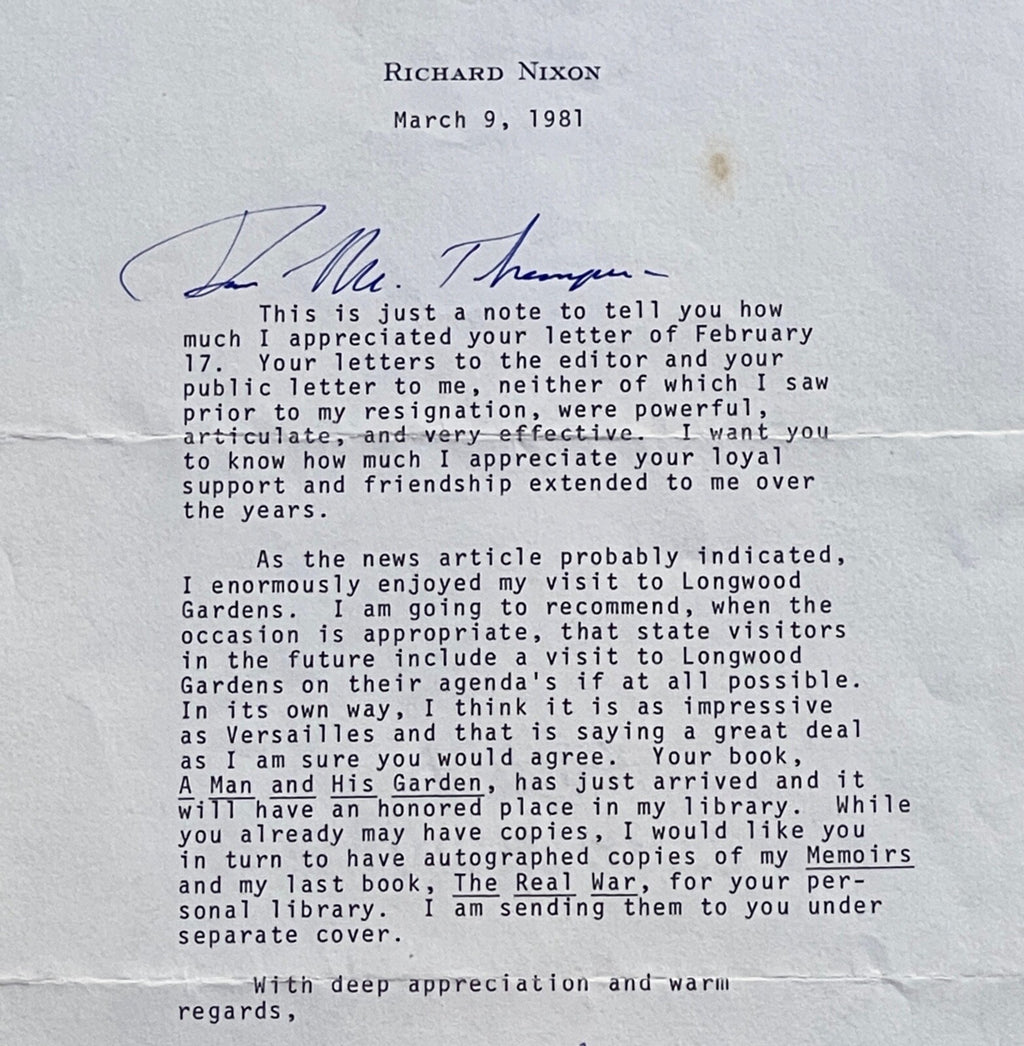 RICHARD NIXON
March 9, 1981
Dear Mr. Thompson -
This is just a note to tell you how
much I appreciated your letter of February
17. Your letters to the editor and your
public letter to me, neither of which I saw
prior to my resignation, were powerful,
articulate, and very effective. I want you
to know how much I appreciate your loyal
support and friendship extended to me over
the years.
As the news article probably indicated,
I enormously enjoyed my visit to Longwood
Gardens. I am going to recommend, when the
occasion is appropriate, that state visitors
in the future include a visit to Longwood
Gardens on their agenda's if at all possible.
In its own way, I think it is as impressive
as Versailles and that is saying a great deal
as I am sure you would agree. Your book,
A Man and His Garden, has just arrived and it
will have an honored place in my library. While
you already may have copies, I would like you
in turn to have autographed copies of my Memoirs
and my last book, The Real War, for your per-
sonal library. I am sending them to you under
separate cover.
With deep appreciation and warm
regards,